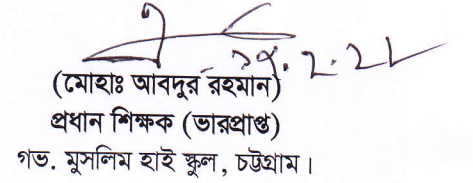 (মোহাঃ আবদুর রহমান)
প্রধান শিক্ষক (ভারপ্রাপ্ত)
গভ. মুসলিম হাই স্কুল, চট্টগ্রাম।